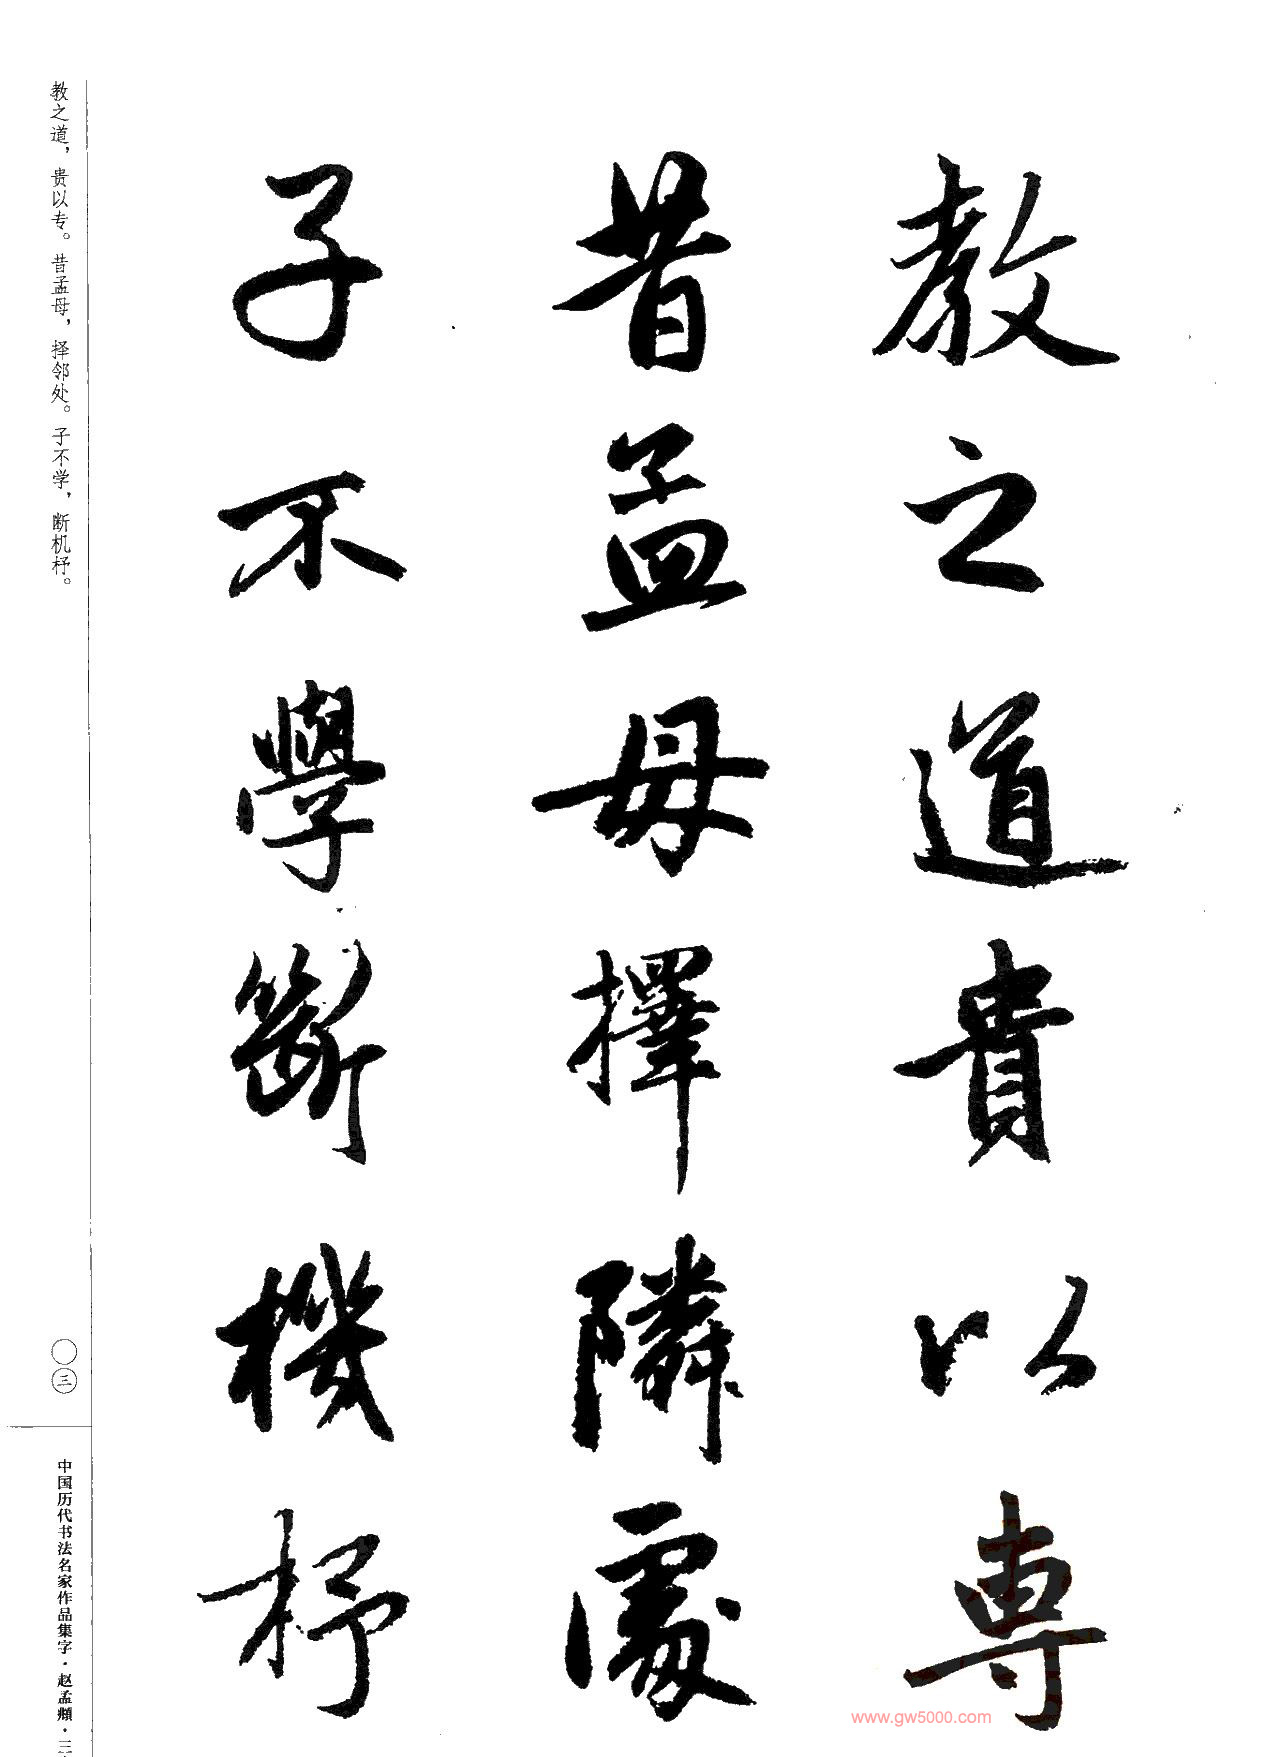 教之道貴以專
昔孟母擇隣處
子不學斷機杼
教之道，贵以专。昔孟母，择邻处。子不学，断机杼。
〇三
中国历代书法名家作品集字·赵孟頫·三
www.gw5000.com